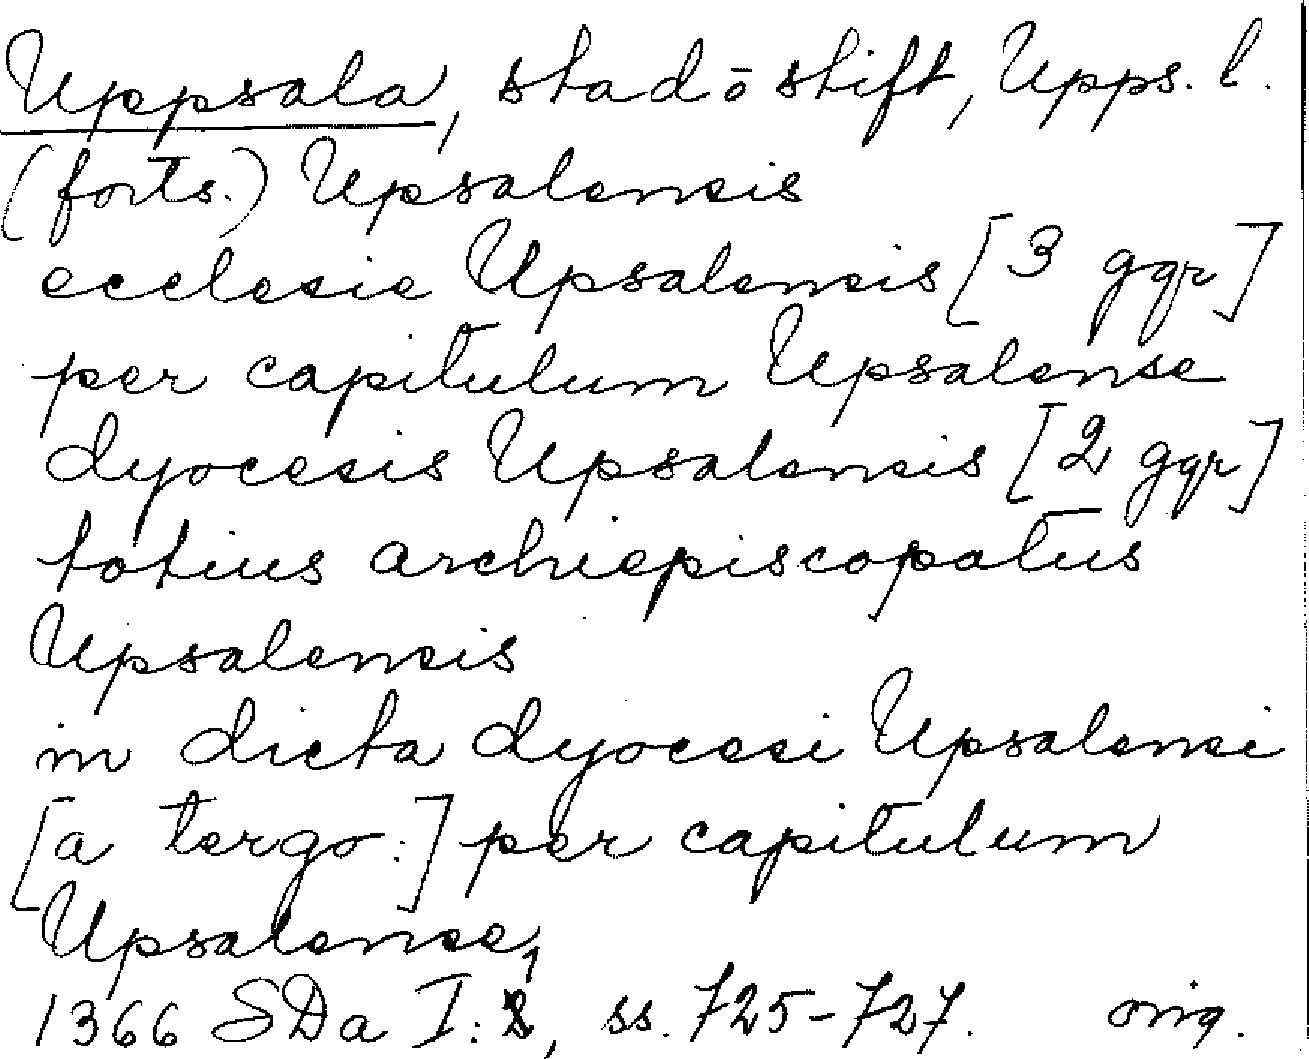 Uppsala, stad ō stift, Upps. l.
(forts.) Upsalensis
ecclesie Upsalensis [3 ggr]
per capitulum Upsalense
dyocesis Upsalensis [2 ggr]
totius archiepiscopatus
Upsalensis
in dicta dyocesi Upsalensi
[a tergo:] per capitulum
Upsalense,
1366 SDa I: , ss. 725-727. orig.